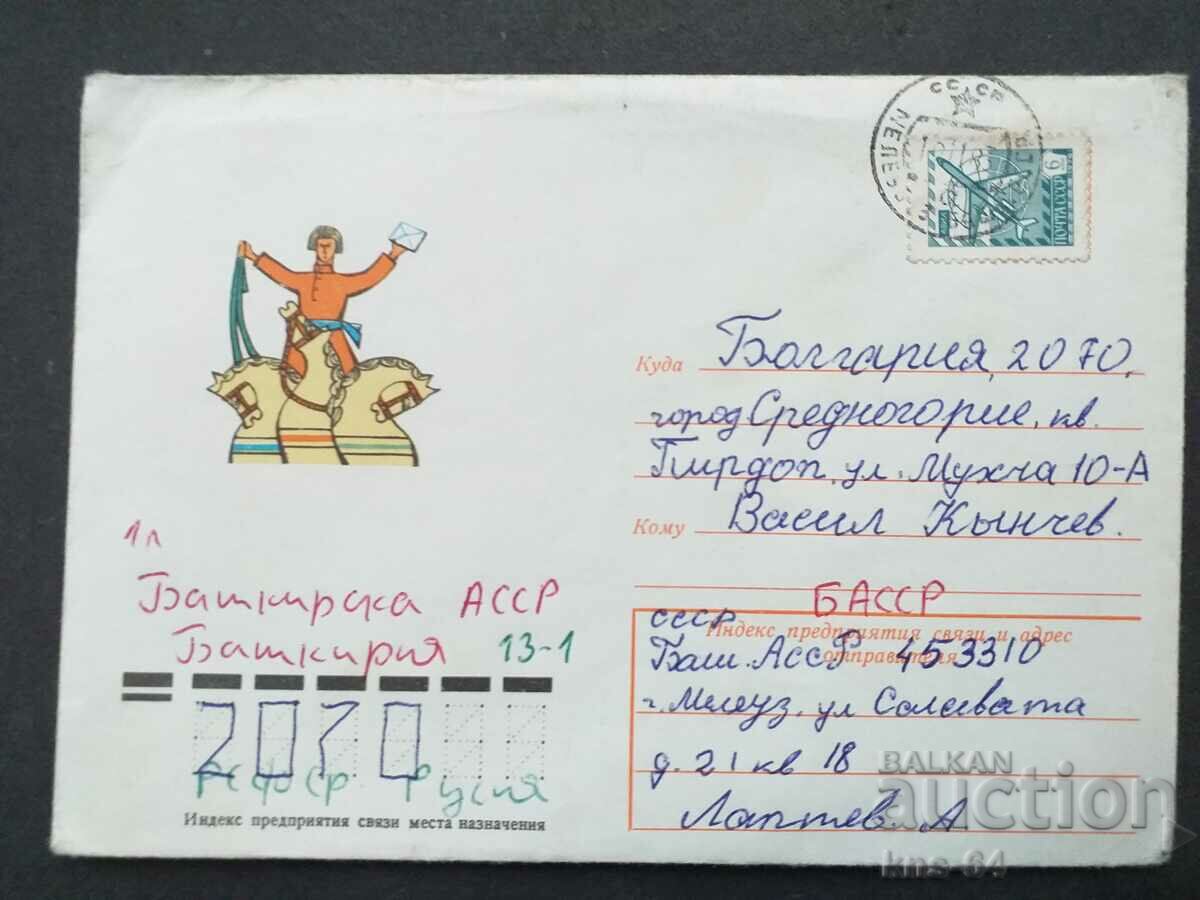 СССР
МЕЛЕУЗ
6
ПОЧТА СССР
Куда Болгария, 2070,
город Средногорие, кв.
Пирдоп, ул. Мухча 10-А
Кому Васил Кынчев.
1л
Башкирска АССР
Башкирия 13-1
2070
РСФСР Русия
Индекс предприятия связи места назначения
БАССР
СССР
Индекс предприятия связи и адрес
отправителя
Баш. АССР 453310
г. Мелеуз, ул Салавата
д. 21 кв 18
Лаптев. А
BALKAN
auction
kns-64